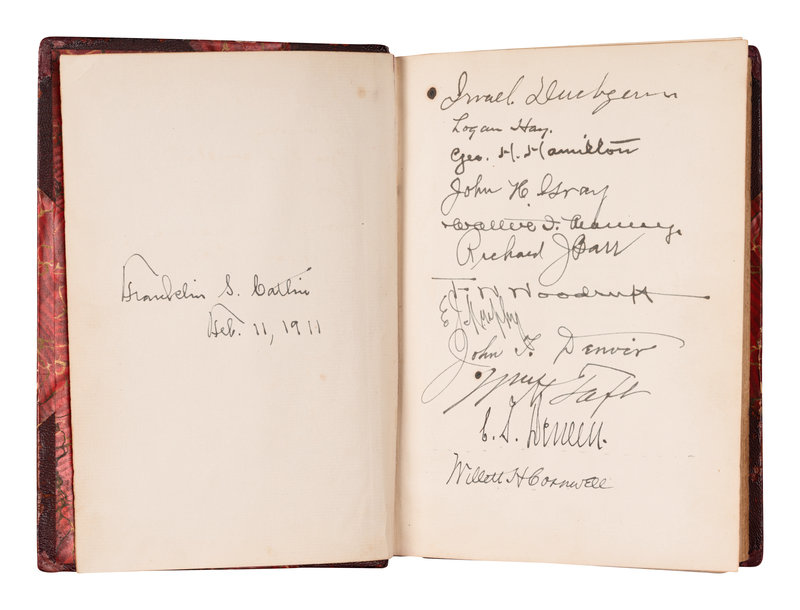 Franklin S. Catlin
Feb. 11, 1911
Israel
Logan Hay.
Geo. H. Hamilton
John H. Gray
Richard J Barr
Woodruff
E J Murphy
John T. Denvir
Wm H Taft
C. S. Deneen.
Willett H Cornwell